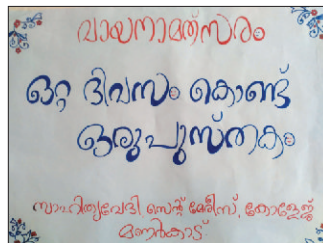 വായനാമത്സരം
ഒറ്റ ദിവസം കൊണ്ട്
ഒരുപുസ്തകം
സാഹിത്യവേദി, സെന്റ് മേരീസ്, കോളേജ്
മണർകാട്